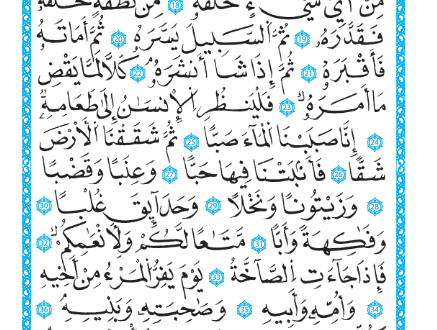 مِنْ أَىِّ شَىْءٍ خَلَقَهُۥ ١٨ مِن نُّطْفَةٍ خَلَقَهُۥ
فَقَدَّرَهُۥ ١٩ ثُمَّ ٱلسَّبِيلَ يَسَّرَهُۥ ٢٠ ثُمَّ أَمَاتَهُۥ
فَأَقْبَرَهُۥ ٢١ ثُمَّ إِذَا شَآءَ أَنشَرَهُۥ ٢٢ كَلَّا لَمَّا يَقْضِ
مَآ أَمَرَهُۥ ٢٣ فَلْيَنظُرِ ٱلْإِنسَٰنُ إِلَىٰ طَعَامِهِۦٓ
٢٤ أَنَّا صَبَبْنَا ٱلْمَآءَ صَبًّا ٢٥ ثُمَّ شَقَقْنَا ٱلْأَرْضَ
شَقًّا ٢٦ فَأَنۢبَتْنَا فِيهَا حَبًّا ٢٧ وَعِنَبًا وَقَضْبًا
٢٨ وَزَيْتُونًا وَنَخْلًا ٢٩ وَحَدَآئِقَ غُلْبًا ٣٠
وَفَٰكِهَةً وَأَبًّا ٣١ مَّتَٰعًا لَّكُمْ وَلِأَنْعَٰمِكُمْ ٣٢
فَإِذَا جَآءَتِ ٱلصَّآخَّةُ ٣٣ يَوْمَ يَفِرُّ ٱلْمَرْءُ مِنْ أَخِيهِ
٣٤ وَأُمِّهِۦ وَأَبِيهِ ٣٥ وَصَٰحِبَتِهِۦ وَبَنِيهِ ٣٦